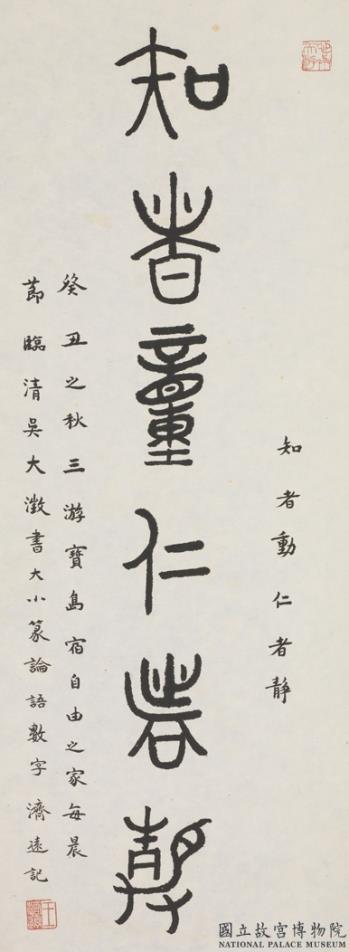 知者動仁者静
知者童仁者静
癸丑之秋三游寶島宿自由之家每晨
節臨清吳大澂書大小篆論語數字 濟遠記
國立故宮博物院
NATIONAL PALACE MUSEUM